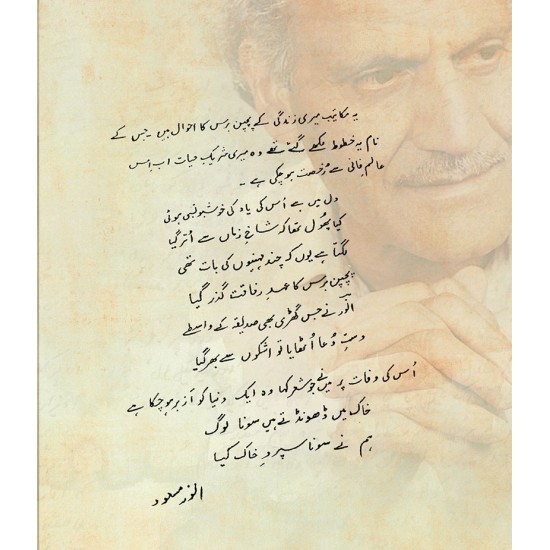 یہ مکاتیب میری زندگی کے پچپن برس کا احوال ہیں ۔ جس کے
نام یہ خطوط لکھے گئے تھے وہ میری شریکِ حیات اب اِس
عالمِ فانی سے رُخصت ہو چکی ہے ۔
دل میں ہے اُس کی یاد کی خوشبو بسی ہوئی
کیا پھول تھا کہ شاخِ زماں سے اُتر گیا
لگتا ہے یوں کہ چند مہینوں کی بات تھی
پچپن برس کا عہدِ رفاقت گزر گیا
انورؔ نے جس گھڑی بھی صدیقہ کے واسطے
دستِ دُعا اُٹھایا تو اشکوں سے بھر گیا
اُس کی وفات پر میں نے جو شعر کہا وہ ایک دنیا کو ازبر ہو چکا ہے
خاک میں ڈھونڈتے ہیں سونا لوگ
ہم نے سونا سپردِ خاک کیا
انور مسعود